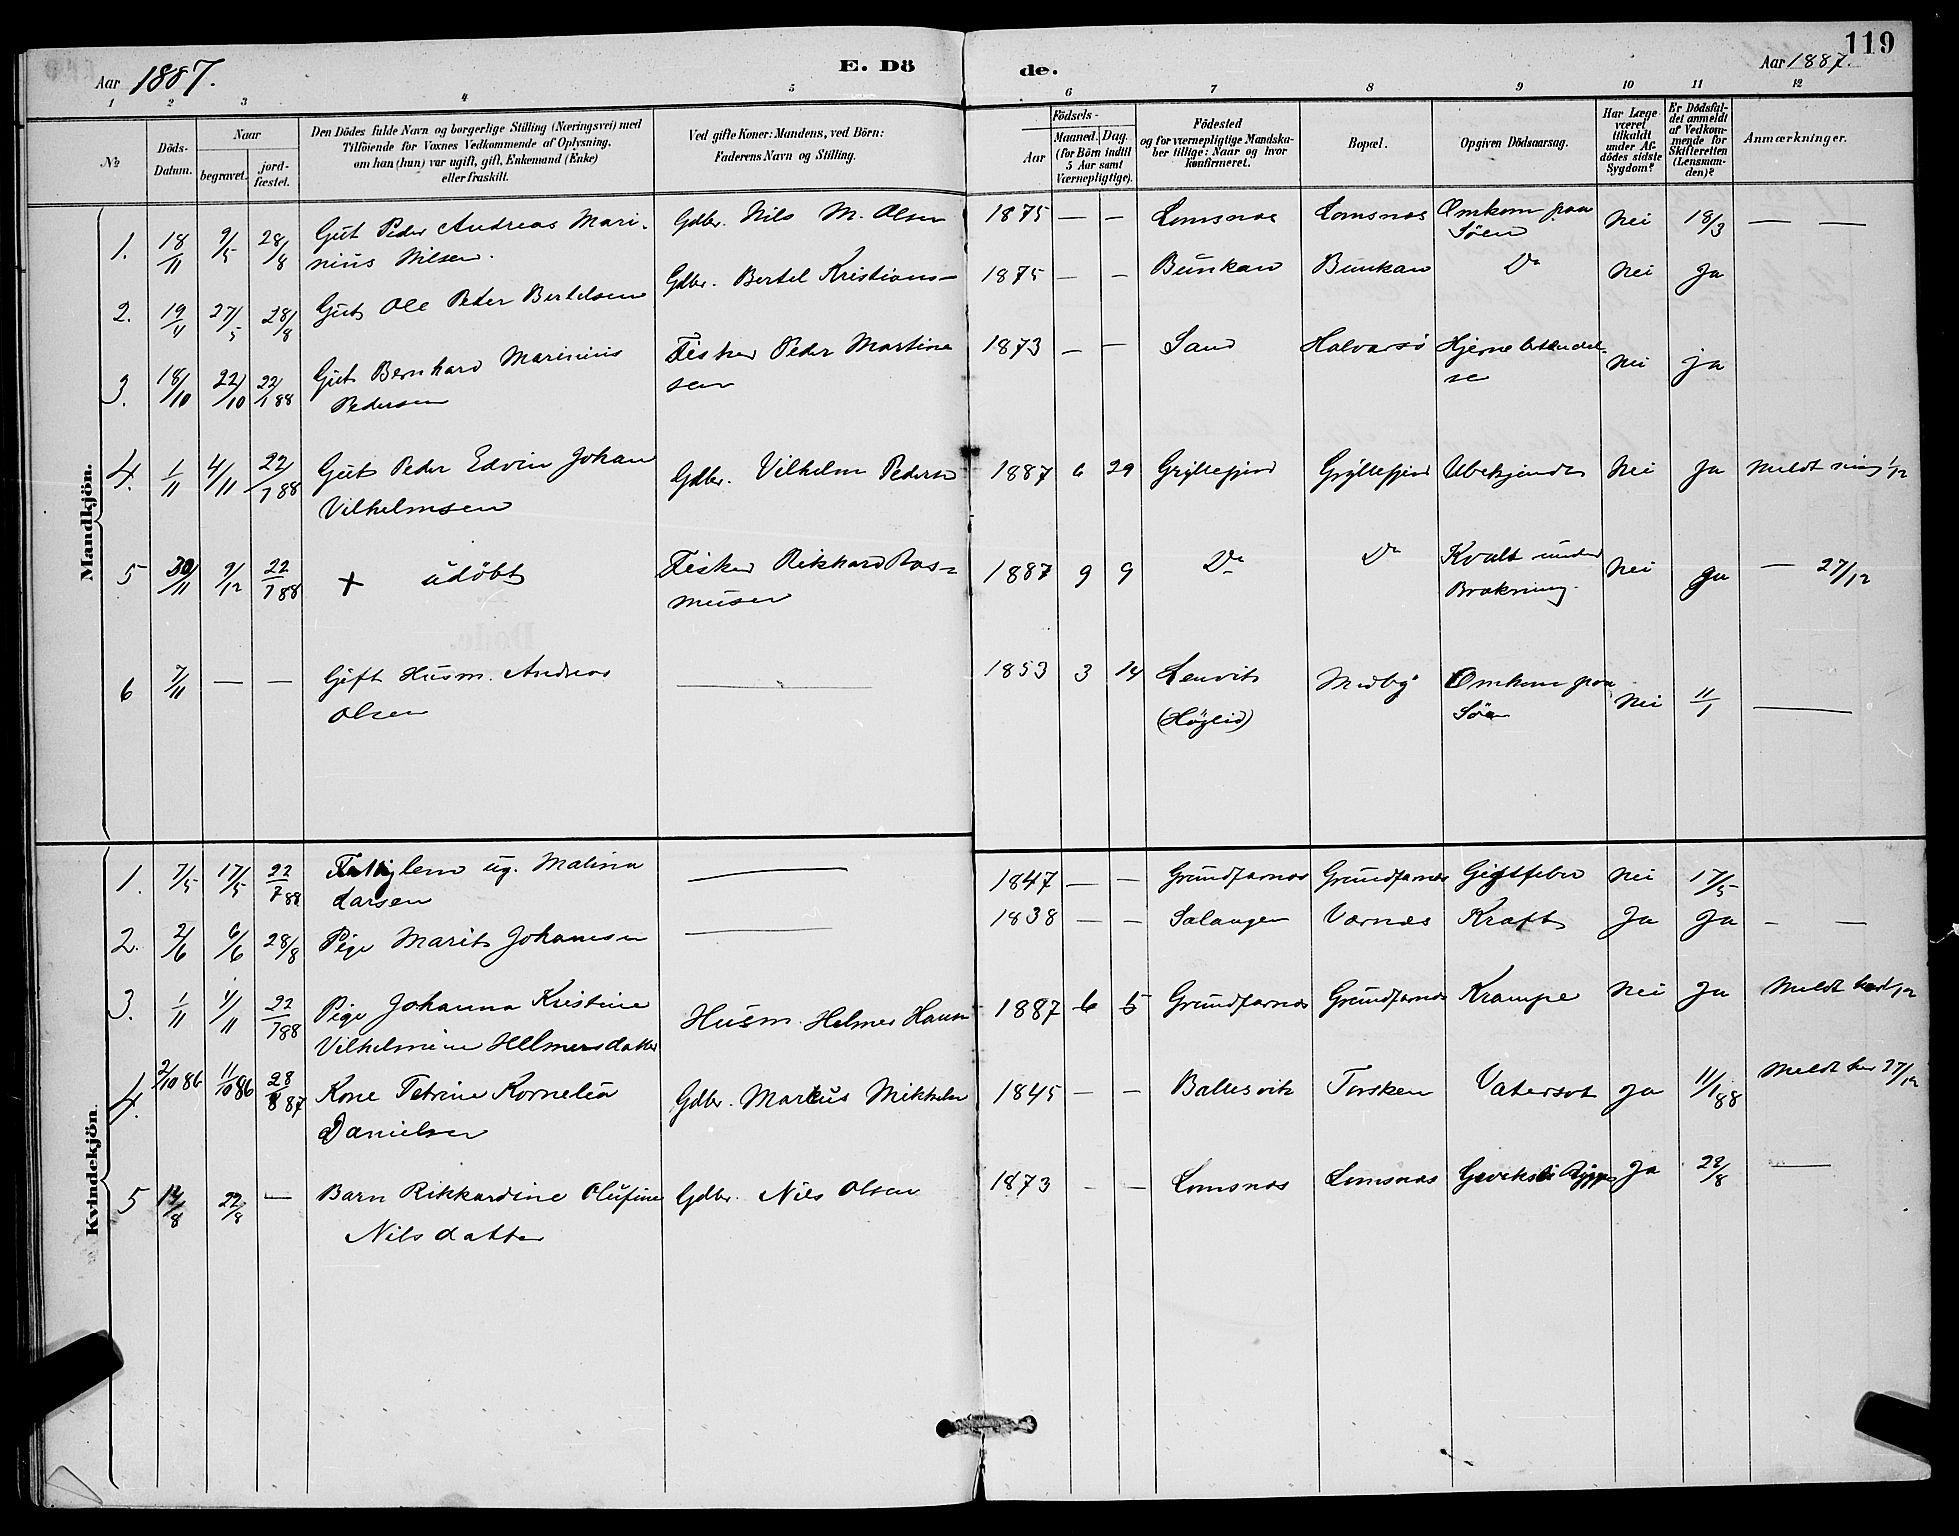 119
Aar 1887.
E. Dö
de.
Aar 1887.
1 2 3 4 5 6 7 8 9 10 11 12
No
Döds-
Datum.
Naar
begravet.
jord-
fæstet.
Den Dödes fulde Navn og borgerlige Stilling (Næringsvei) med
Tilföiende for Voxnes Vedkommende af Oplysning,
om han (hun) var ugift, gift, Enkemand (Enke)
eller fraskilt.
Ved gifte Koner: Mandens, ved Börn:
Faderens Navn og Stilling.
Födsels-
Aar
Maaned. Dag.
(for Börn indtil
5 Aar samt
Værnepligtige).
Födested
og for værnepligtige Mandska-
ber tillige: Naar og hvor
konfirmeret.
Bopæl.
Opgiven Dödsaarsag.
Har Læge
været
tilkaldt
under Af-
dödes sidste
Sygdom?
Er Dödsfal-
det anmeldt
af Vedkom-
mende for
Skifteretten
(Lensman-
den)?
Anmærkninger.
Mandkjön.
1. 18/11 9/5 28/8 Gut Peder Andreas Mari-
nius Nilsen. Gdbr. Nils M. Olsen 1875 — — Lomsnæs Lomsnæs Omkom paa
Söen Nei 18/3 — —
2. 19/11 27/5 28/8 Gut Ole Peder Bertelsen Gdbr. Bertel Kristians- 1875 — — Bunkan Bunkan Do Nei Ja
3. 18/10 22/10 22/1 88 Gut Bernhard Marinius
Pedersen Fisker Peder Martin
sen 1873 — — Sand Halvarsö Hjernebetændel-
se Nei ja
4. 1/11 4/11 22/1 88 Gut Peder Edvin Johan
Vilhelmsen Gdbr. Vilhelm Pedersen 1887 6 29 Gryllefjord Gryllefjord Ubekjendt Nei Ja Meldt
5 30/11 9/12 22/1 88 + udöbt Fisker Rikhard Ras-
musen 1887 9 9 Do Do Kvalt under
Brækning. Nei Ja — 27/12
6 7/11 — — Gift Husm. Andreas
Olsen — 1853 3 14 Lenvik
(Höglid) Medby Omkom paa
Söen Nei 11/1 —
Kvindekjön.
1. 7/5 17/5 22/7 88 ug. Malina
Larsen — 1847 — — Grundfarnæs Grundfarnæs Gigtfeber Nei 17/5
2. 2/6 6/6 28/8 Pige Marit Johansen — 1838 — — Salangen Værnæs Kræft Ja Ja — —
3. 1/11 4/11 22/1 88 Pige Johanna Kristine
Vilhelmine Helmersdatter Husm. Helmer Hansen 1887 6 5 Grundfarnæs Grundfarnæs Krampe Nei Ja Meldt
4. 2/10 86 11/10 86 28/8 87 Kone Petrine Kornelia
Danielsen Gdbr. Markus Mikkelsen 1845 — — Ballesvik Torsken Vatersot Ja 11/1 88 Meldt her 27/12
5 14/8 22/8 — Barn Rikkardine Olufine
Nilsdatter Gdbr. Nils Olsen 1873 — — Lomsnæs Lomsnæs Ja 22/8 —